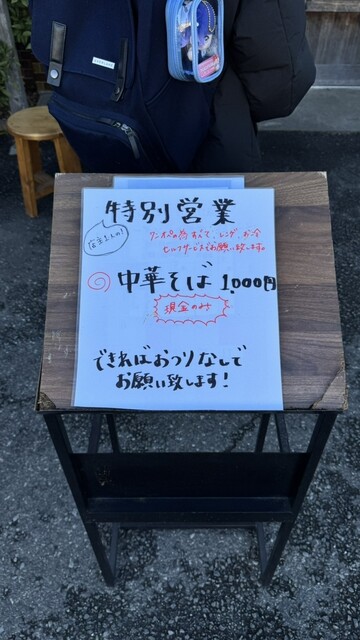 特別営業
店主1人の!
ワンオペの為、すみません、レンゲ、お水
セルフサービスでお願い致します。
中華そば 1,000円
現金のみ
できればおつりなしで
お願い致します!